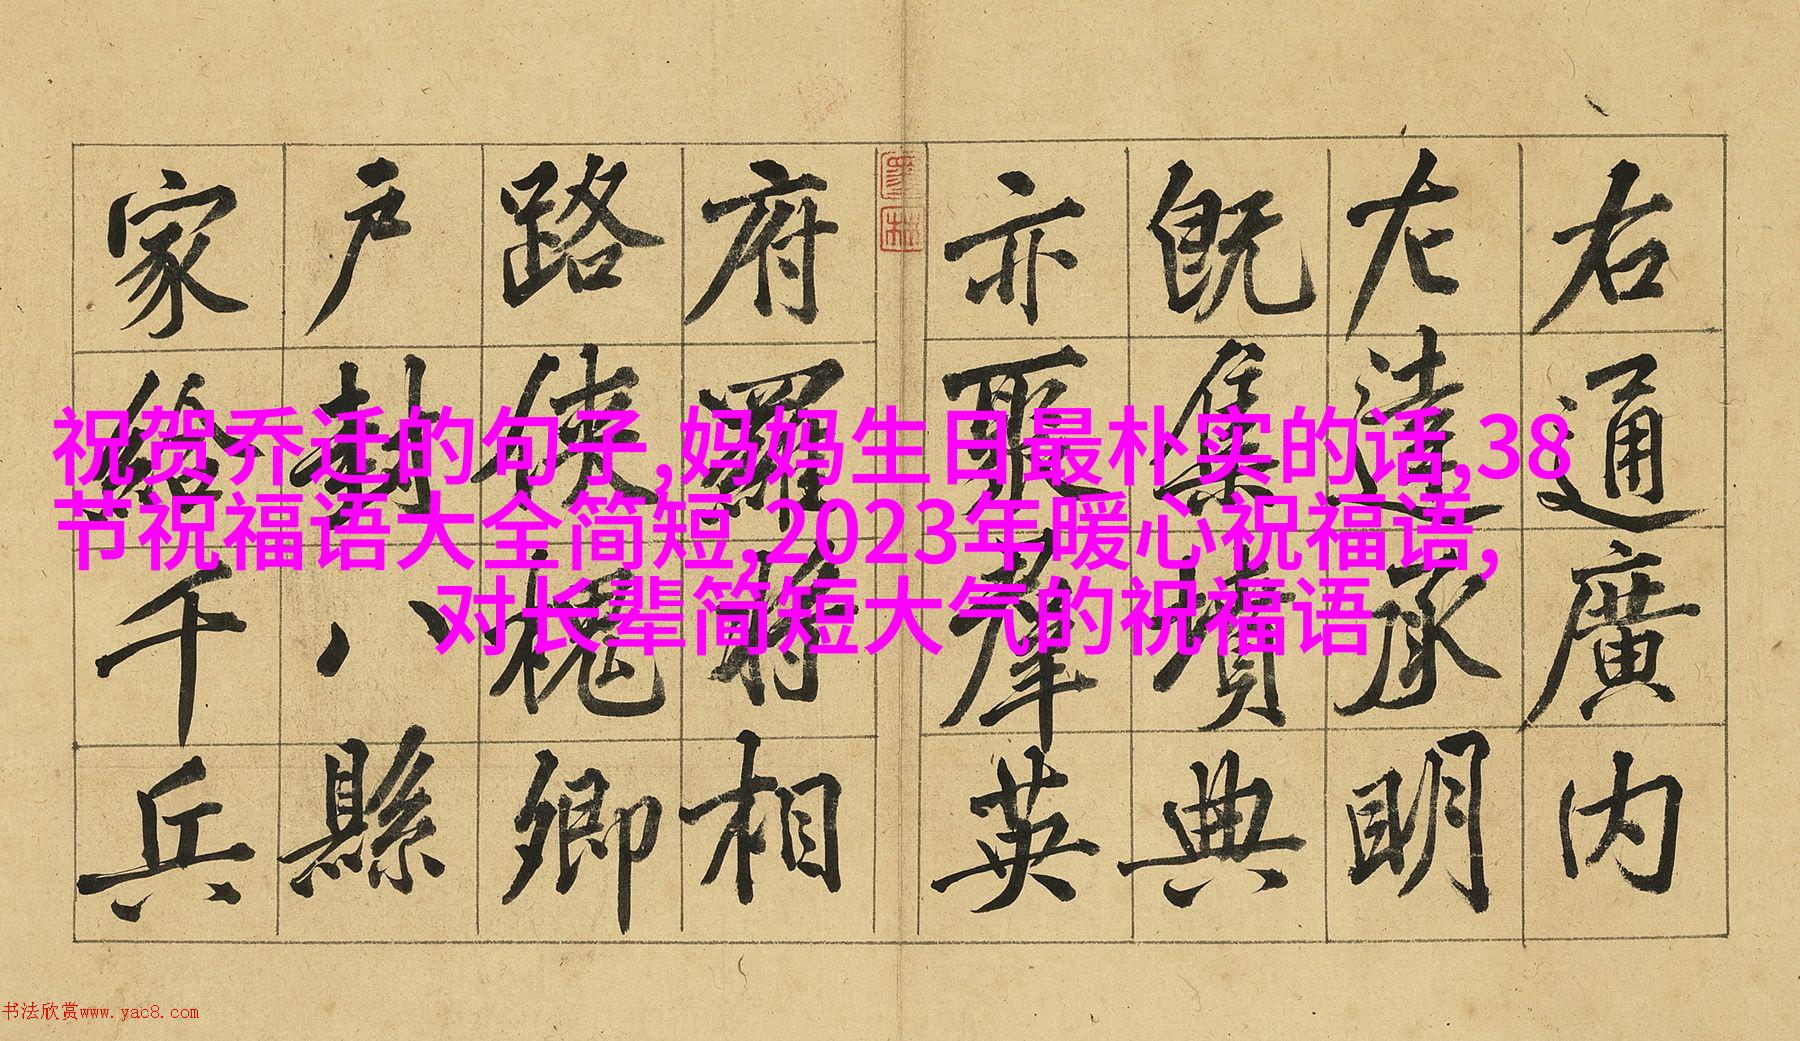 右通廣内
左達承明
既集墳典
亦聚羣英
府羅將相
路俠槐卿
户封八縣
家給千兵
祝贺乔迁的句子,妈妈生日最朴实的话,38
节祝福语大全简短,2023年暖心祝福语,
对长辈简短大气的祝福语
书法欣赏www.yac8.com